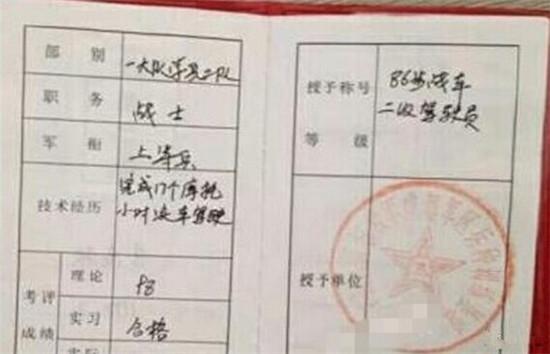 部别 一大队学员二队
职务 战士
军衔 上等兵
技术经历 完成17个摩托
小时汽车驾驶
考评成绩 理论 98
实习 合格
实际
授予称号 86步战车
等级 二级驾驶员
授予单位